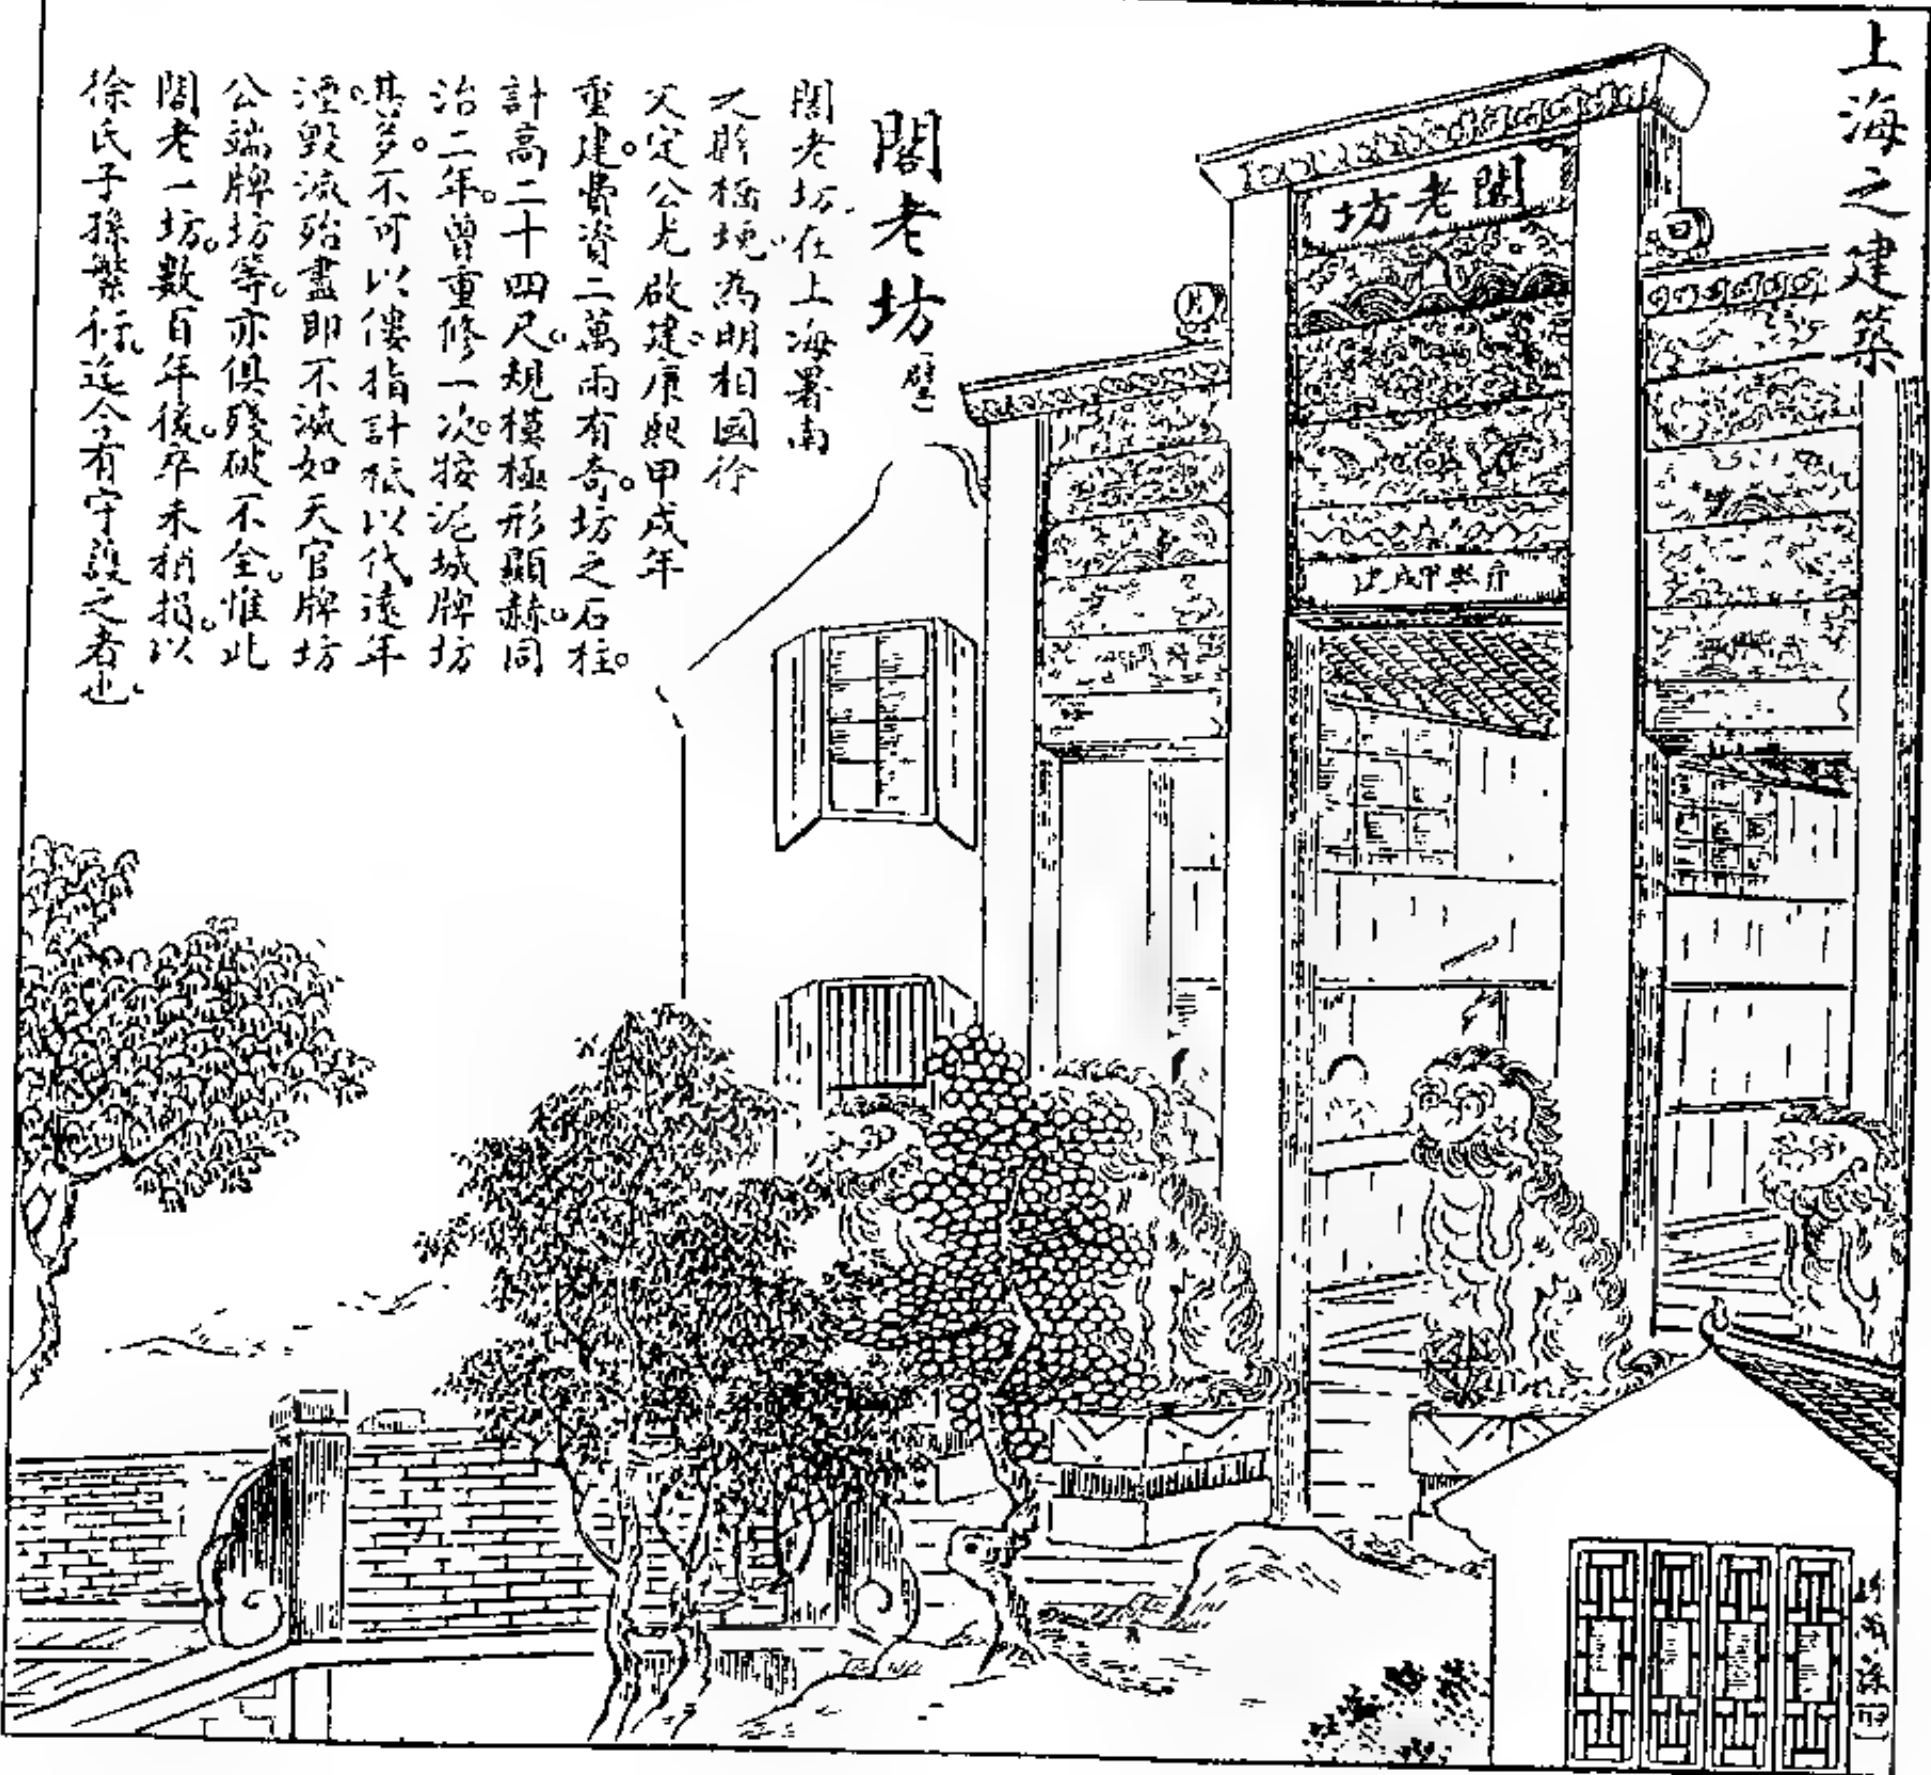 上海之建築
閣老坊
閣老坊在上海署南
父定公光啟建康熙甲戌年
重建費資二萬兩有奇坊之石柱
計高二十四尺規模極形顯赫同
治二年曾重修一次按泥城牌坊
甚多不可以僂指計祇以代遠年
湮毀滅殆盡即不滅如天官牌坊
公端牌坊等亦俱殘破不全惟此
閣老一坊數百年後卒未稍損以
徐氏子孫繁衍迄今有守護之者也
閣老坊
日
月